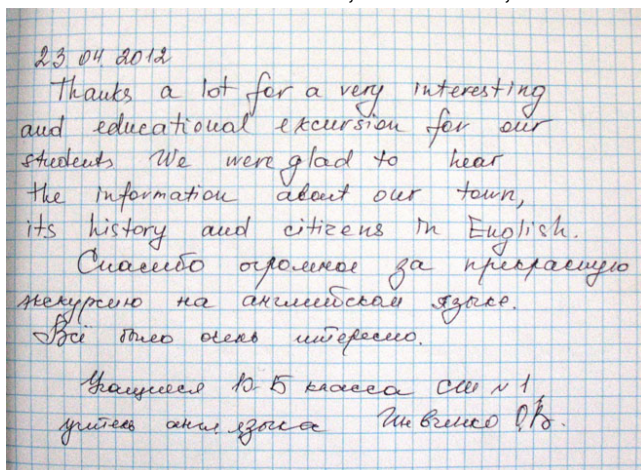 23.04.2012
Thanks a lot for a very interesting
and educational excursion for our
students We were glad to hear
the information about our town,
its history and citizens in English.
Спасибо огромное за прекрасную
экскурсию на английском языке.
Всё было очень интересно.
Учащиеся 10 Б класса СШ №1,
учитель англ. языка О.В.